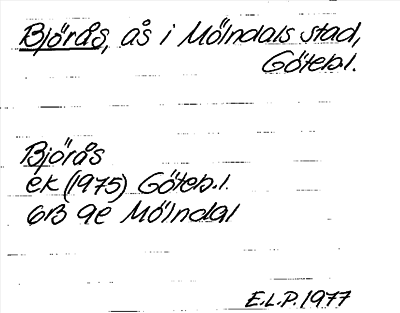 Björås, ås i Mölndals stad,
Göteb.l.
Björås
ek (1975) Göteb.l.
6B 9e Mölndal
E.L.P. 1977